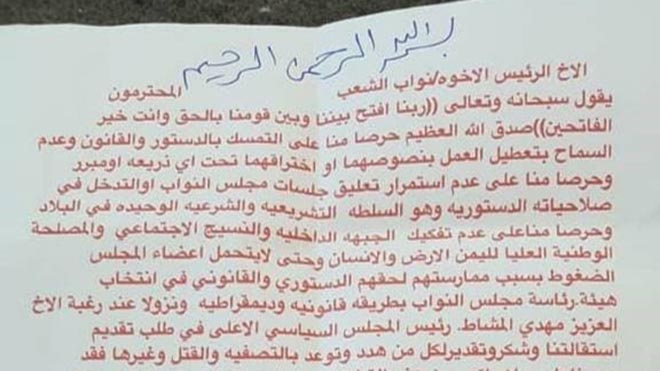 بسم الله الرحمن الرحيم
الاخ الرئيس الاخوه/نواب الشعب المحترمون
يقول سبحانه وتعالى ((ربنا افتح بيننا وبين قومنا بالحق وانت خير
الفاتحين))صدق الله العظيم حرصا منا على التمسك بالدستور والقانون وعدم
السماح بتعطيل العمل بنصوصهما او اختراقهما تحت اي ذريعه اومبرر
وحرصا منا على عدم استمرار تعليق جلسات مجلس النواب اوالتدخل في
صلاحياته الدستوريه وهو السلطه التشريعيه والشرعيه الوحيده في البلاد
وحرصا مناعلى عدم تفكيك الجبهه الداخليه والنسيج الاجتماعي والمصلحة
الوطنية العليا لليمن الارض والانسان وحتى لايتحمل اعضاء المجلس
الضغوط بسبب ممارستهم لحقهم الدستوري والقانوني في انتخاب
هيئة.رئاسة مجلس النواب بطريقه قانونيه وديمقراطيه ونزولا عند رغبة الاخ
العزيز مهدي المشاط. رئيس المجلس السياسي الاعلى في طلب تقديم
استقالتنا وشكروتقديرلكل من هدد وتوعد بالتصفيه والقتل وغيرها فقد